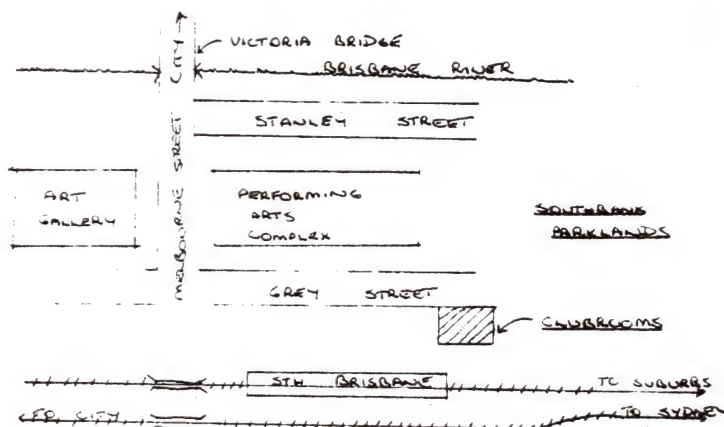 CITY
VICTORIA BRIDGE
BRISBANE RIVER
STANLEY STREET
MELBOURNE STREET
ART
GALLERY
PERFORMING
ARTS
COMPLEX
SOUTHBANK
PARKLANDS
GREY STREET
CLUBROOMS
STH BRISBANE
TO SUBURBS
CITY
TO SYDNEY